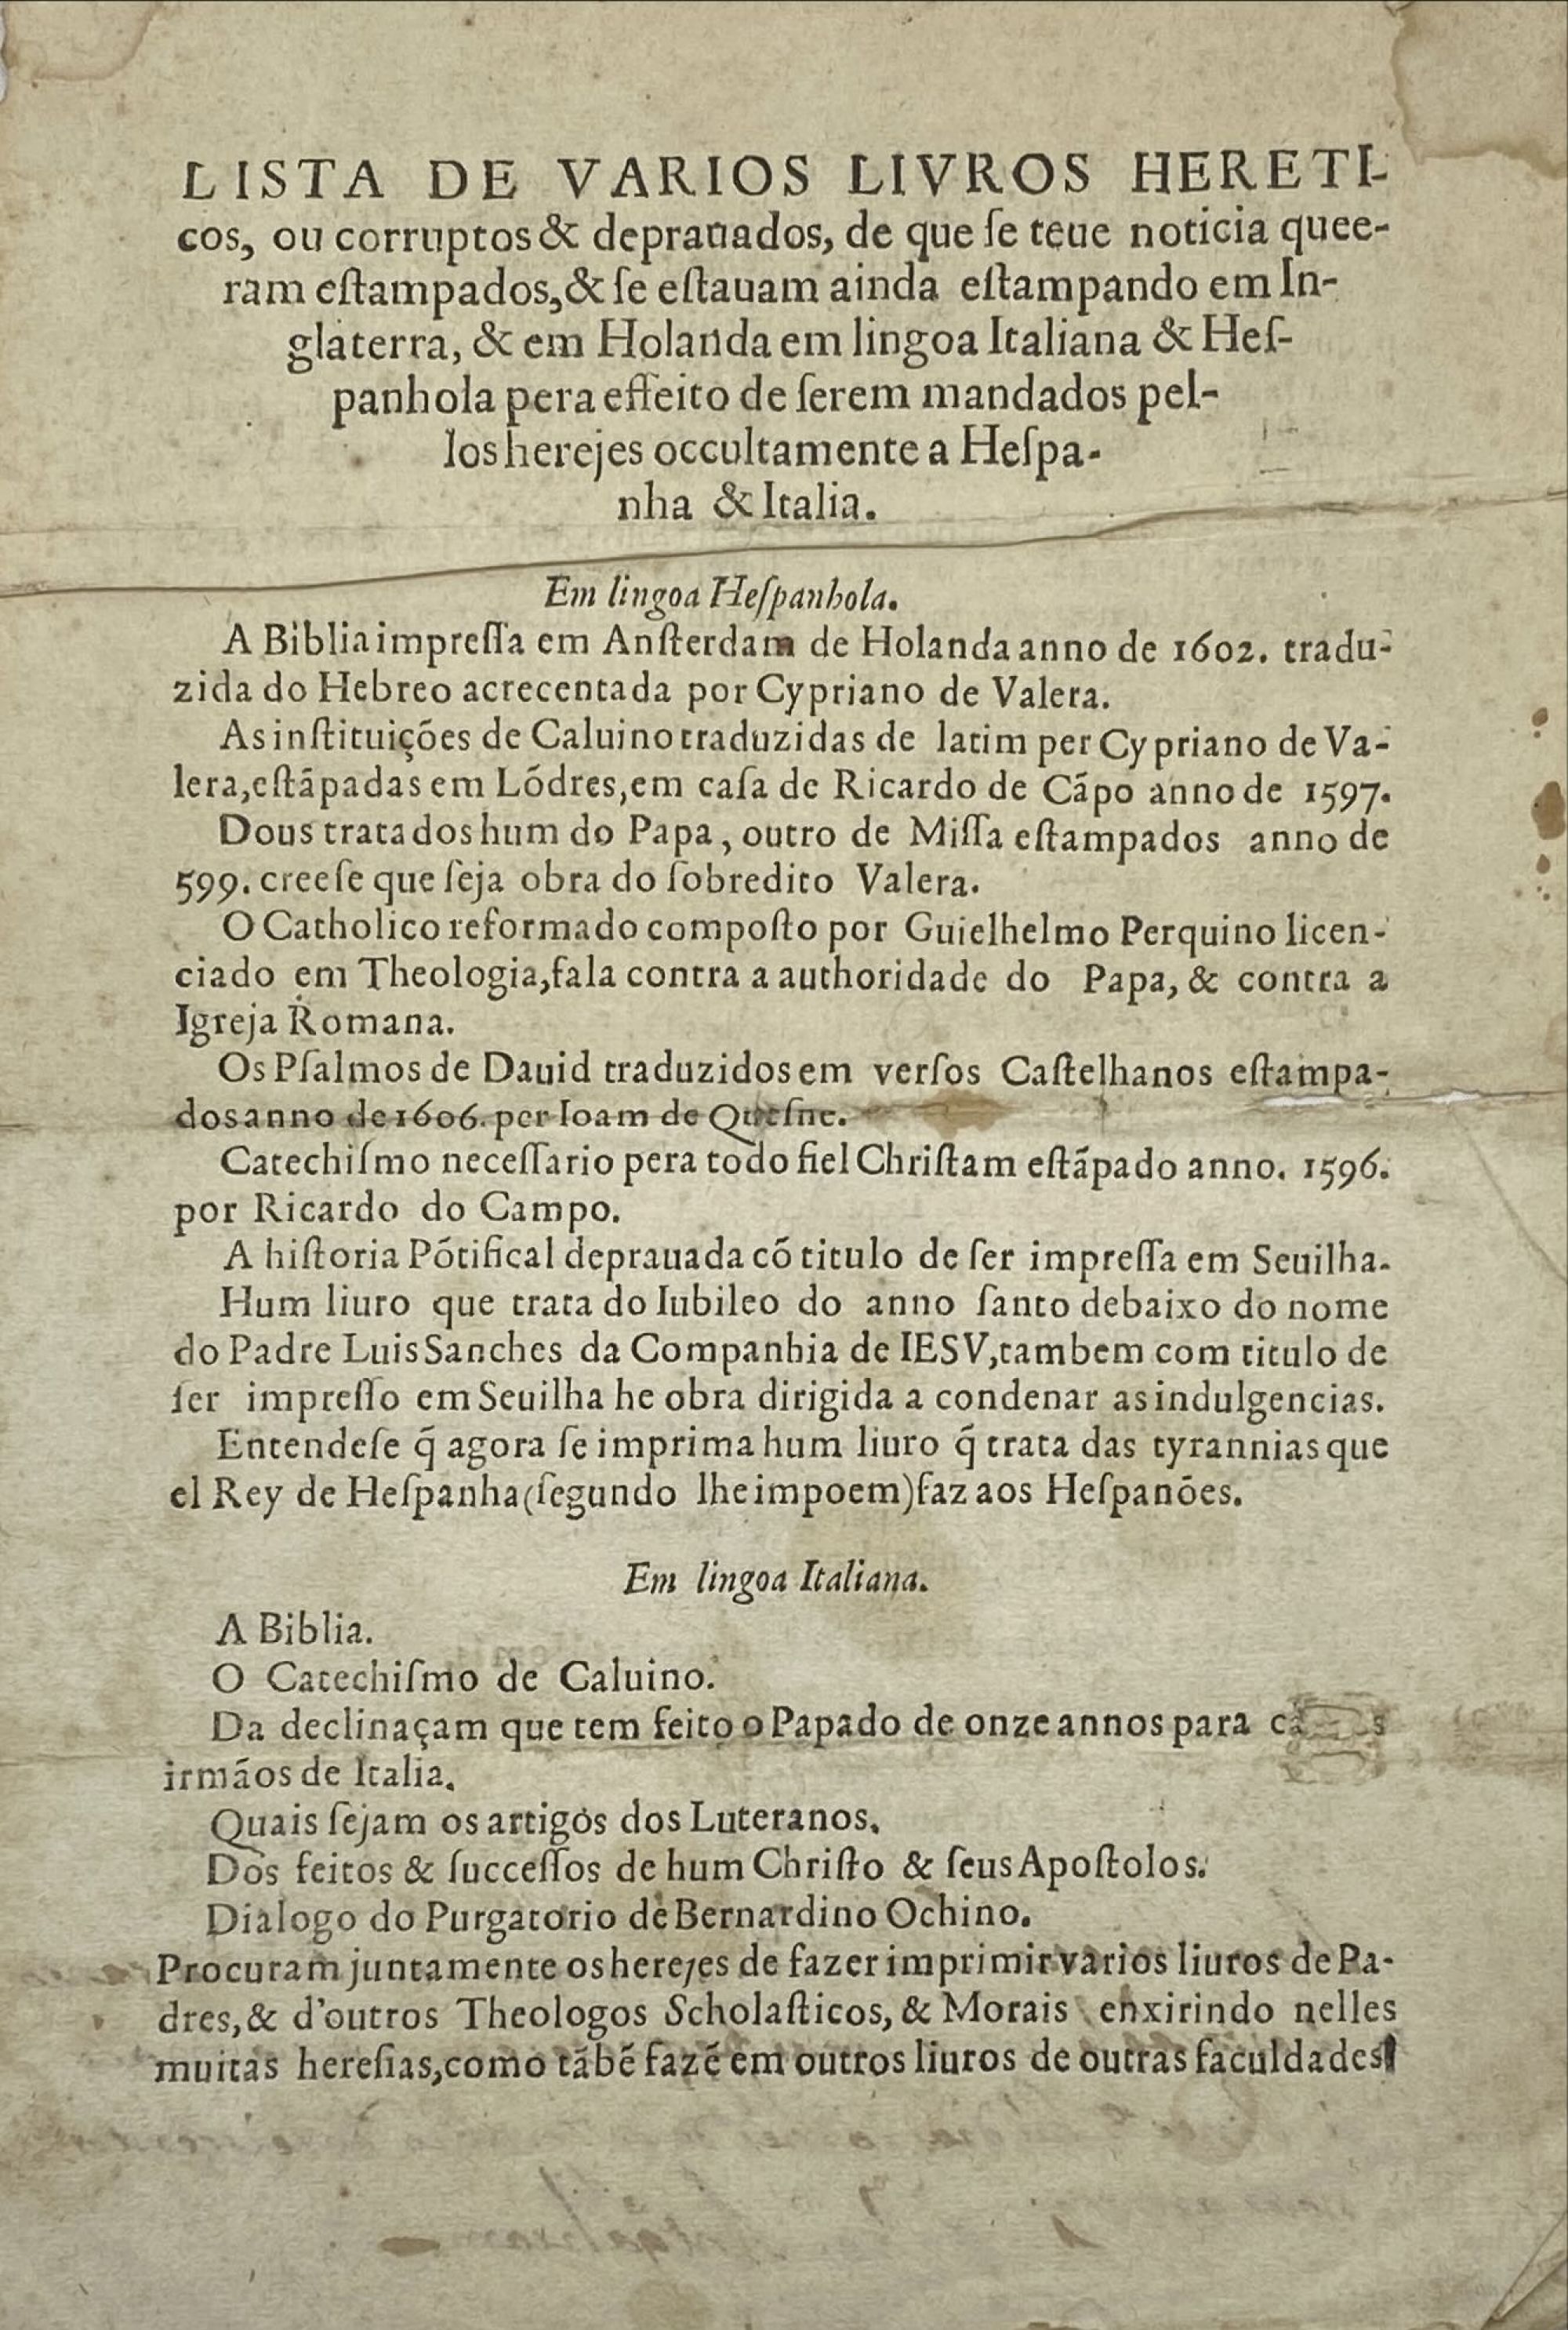 LISTA DE VARIOS LIVROS HERETI-
cos, ou corruptos & deprauados, de que ſe teue noticia quee-
ram eſtampados,& ſe eſtauam ainda eſtampando em In-
glaterra, & em Holanda em lingoa Italiana & Heſ-
panhola pera effeito de ſerem mandados pel-
los herejes occultamente a Heſpa-
nha & Italia.
Em lingoa Heſpanhola.
A Biblia impreſſa em Anſterdam de Holanda anno de 1602. tradu-
zida do Hebreo acrecentada por Cypriano de Valera.
As inſtituições de Caluino traduzidas de latim per Cypriano de Va-
lera,eſtãpadas em Lõdres,em caſa de Ricardo de Cãpo anno de 1597.
Dous tratados hum do Papa, outro de Miſſa eſtampados anno de
599. creeſe que ſeja obra do ſobredito Valera.
O Catholico reformado compoſto por Guielhelmo Perquino licen-
ciado em Theologia,fala contra a authoridade do Papa, & contra a
Igreja Romana.
Os Pſalmos de Dauid traduzidos em verſos Caſtelhanos eſtampa-
dos anno de 1606. per Ioam de Queſne.
Catechiſmo neceſſario pera todo fiel Chriſtam eſtãpado anno. 1596.
por Ricardo do Campo.
A hiſtoria Põtifical deprauada cõ titulo de ſer impreſſa em Seuilha.
Hum liuro que trata do Iubileo do anno ſanto debaixo do nome
do Padre Luis Sanches da Companhia de IESV,tambem com titulo de
ſer impreſſo em Seuilha he obra dirigida a condenar as indulgencias.
Entendeſe q̃ agora ſe imprima hum liuro q̃ trata das tyrannias que
el Rey de Heſpanha(ſegundo lhe impoem)faz aos Heſpanões.
Em lingoa Italiana.
A Biblia.
O Catechiſmo de Caluino.
Da declinaçam que tem feito o Papado de onze annos para
irmãos de Italia.
Quais ſejam os artigos dos Luteranos.
Dos feitos & ſucceſſos de hum Chriſto & ſeus Apoſtolos.
Dialogo do Purgatorio de Bernardino Ochino.
Procuram juntamente os herejes de fazer imprimir varios liuros de Pa-
dres,& d'outros Theologos Scholaſticos, & Morais enxirindo nelles
muitas hereſias,como tãbẽ fazẽ em outros liuros de outras faculdades